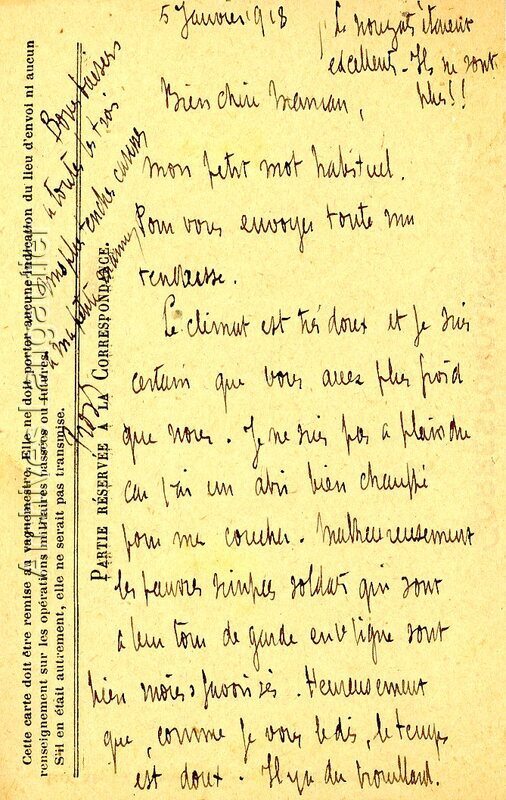 5 Janvier 1918
Le nougats étaient
excellents - Ils ne sont
plus!!
Bien chère Maman,
mon petit mot habituel.
Pour vous envoyer toute ma
tendresse.
Le climat est très doux et je suis
certain que vous avez plus froid
que nous. Je ne suis pas a plaindre
car j'ai un abri bien chauffé
pour me coucher. Malheureusement
les pauvres simples soldats qui sont
a leur tour de garde en ligne sont
bien moins favorisés. Heureusement
que, comme je vous le dis, le temps
est doux. Il y a du brouillard.
Bons baisers
a toutes les trois.
mes plus tendres caresses
à ma petite
PARTIE RÉSERVÉE A LA CORRESPONDANCE.
Cette carte doit être remise au vaguemestre. Elle ne doit porter aucune indication du lieu d'envoi ni aucun
renseignement sur les opérations militaires passées ou futures.
S'il en était autrement, elle ne serait pas transmise.